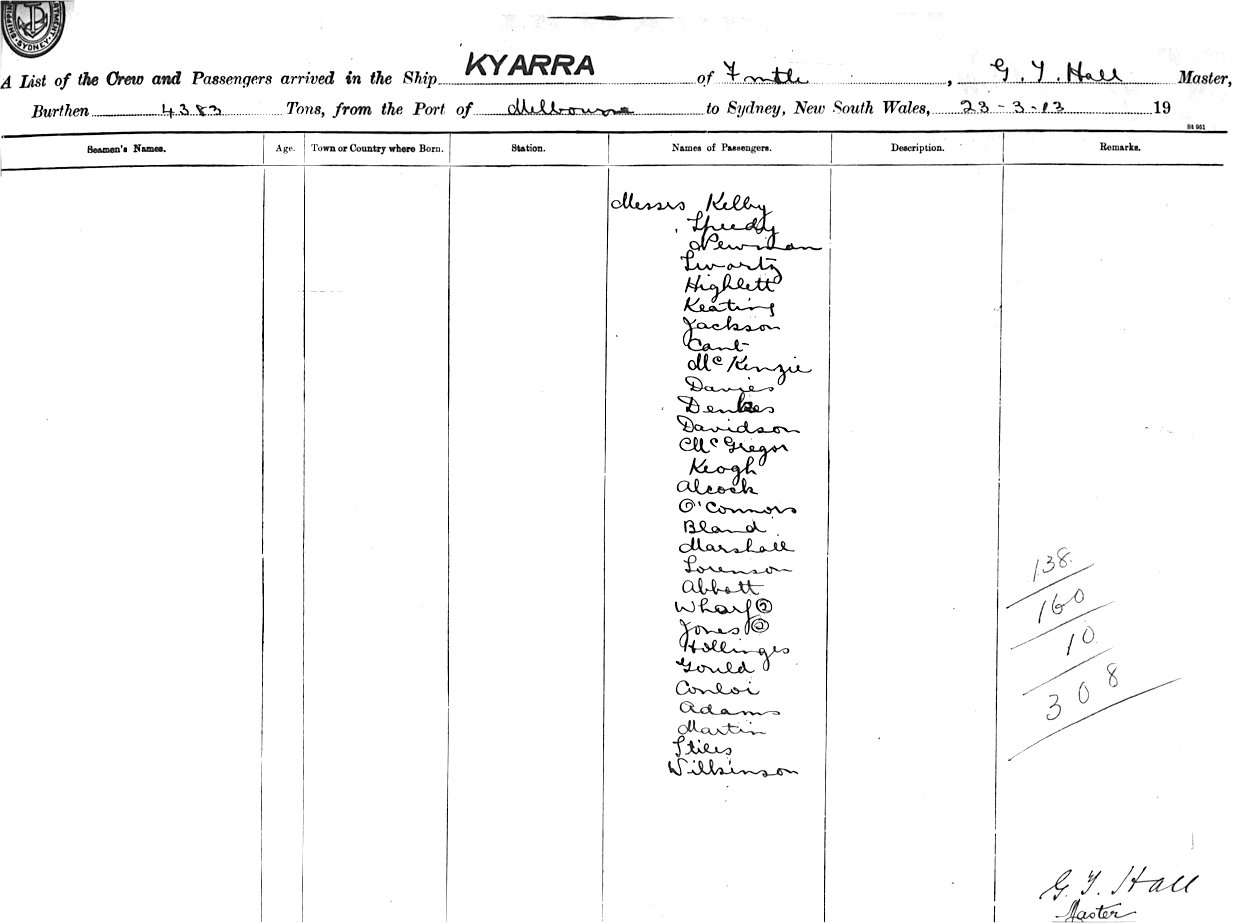 SHIPPING
SYDNEY
A List of the Crew and Passengers arrived in the Ship KYARRA of Fmtle, G. T. Hall Master,
Burthen 4383 Tons, from the Port of Melbourne to Sydney, New South Wales, 23-3-13 19
St 951
Seamen's Names. Age. Town or Country where Born. Station. Names of Passengers. Description. Remarks.
Messrs Kelby
Speedy
Newman
Swartz
Highlett
Keating
Jackson
Cant
McKenzie
Davies
Denkes
Davidson
McGregor
Keogh
Alcock
O'Connors
Bland
Marshall
Lorenson
Abbott
Wharf ②
Jones ②
Hollinges
Gould
Conloi
Adams
Martin
Stiles
Wilkinson
138.
160
10
308
G. T. Hall
Master